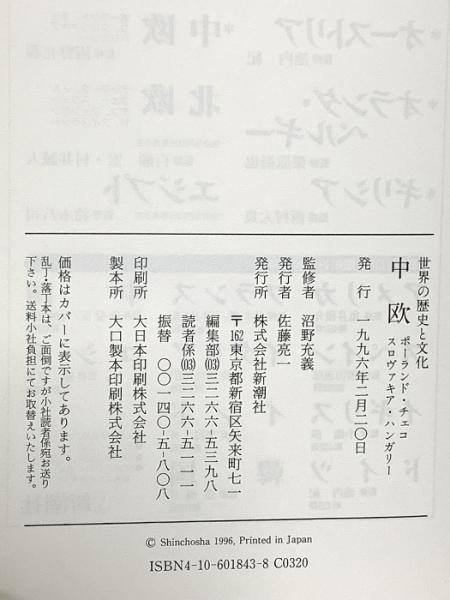 世界の歴史と文化
中欧
ポーランド・チェコ
スロヴァキア・ハンガリー
発行 一九九六年二月二〇日
監修者 沼野充義
発行者 佐藤亮一
発行所 株式会社新潮社
〒162東京都新宿区矢来町七一
編集部(03)三二六六-五三九八
読者係(03)三二六六-五一一一
振替 〇〇一四〇-五-八〇八
印刷所 大日本印刷株式会社
製本所 大口製本印刷株式会社
価格はカバーに表示してあります。
乱丁・落丁本は、ご面倒ですが小社読者係宛お送り
下さい。送料小社負担にてお取替えいたします。
© Shinchosha 1996, Printed in Japan
ISBN4-10-601843-8 C0320